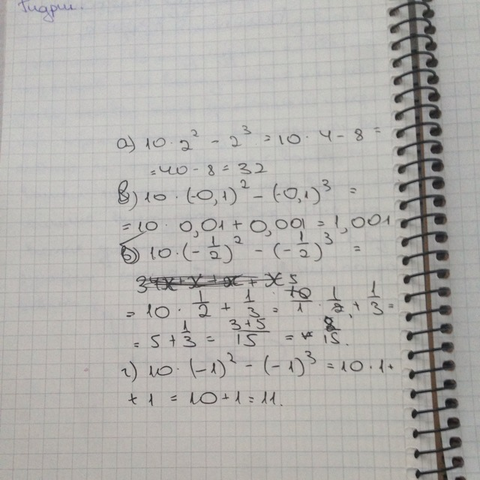 Гидрии.
а) 10 · 2² - 2³ = 10 · 4 - 8 =
= 40 - 8 = 32
в) 10 · (-0,1)² - (-0,1)³ =
= 10 · 0,01 + 0,001 = 1,001
б) 10 · (-1/2)² - (-1/2)³ =
= 10 · 1/2 + 1/3 = 10/1 · 1/2 + 1/3 =
= 5 + 1/3 = 3+5/15 = 8/15.
г) 10 · (-1)² - (-1)³ = 10 · 1 +
+ 1 = 10 + 1 = 11.